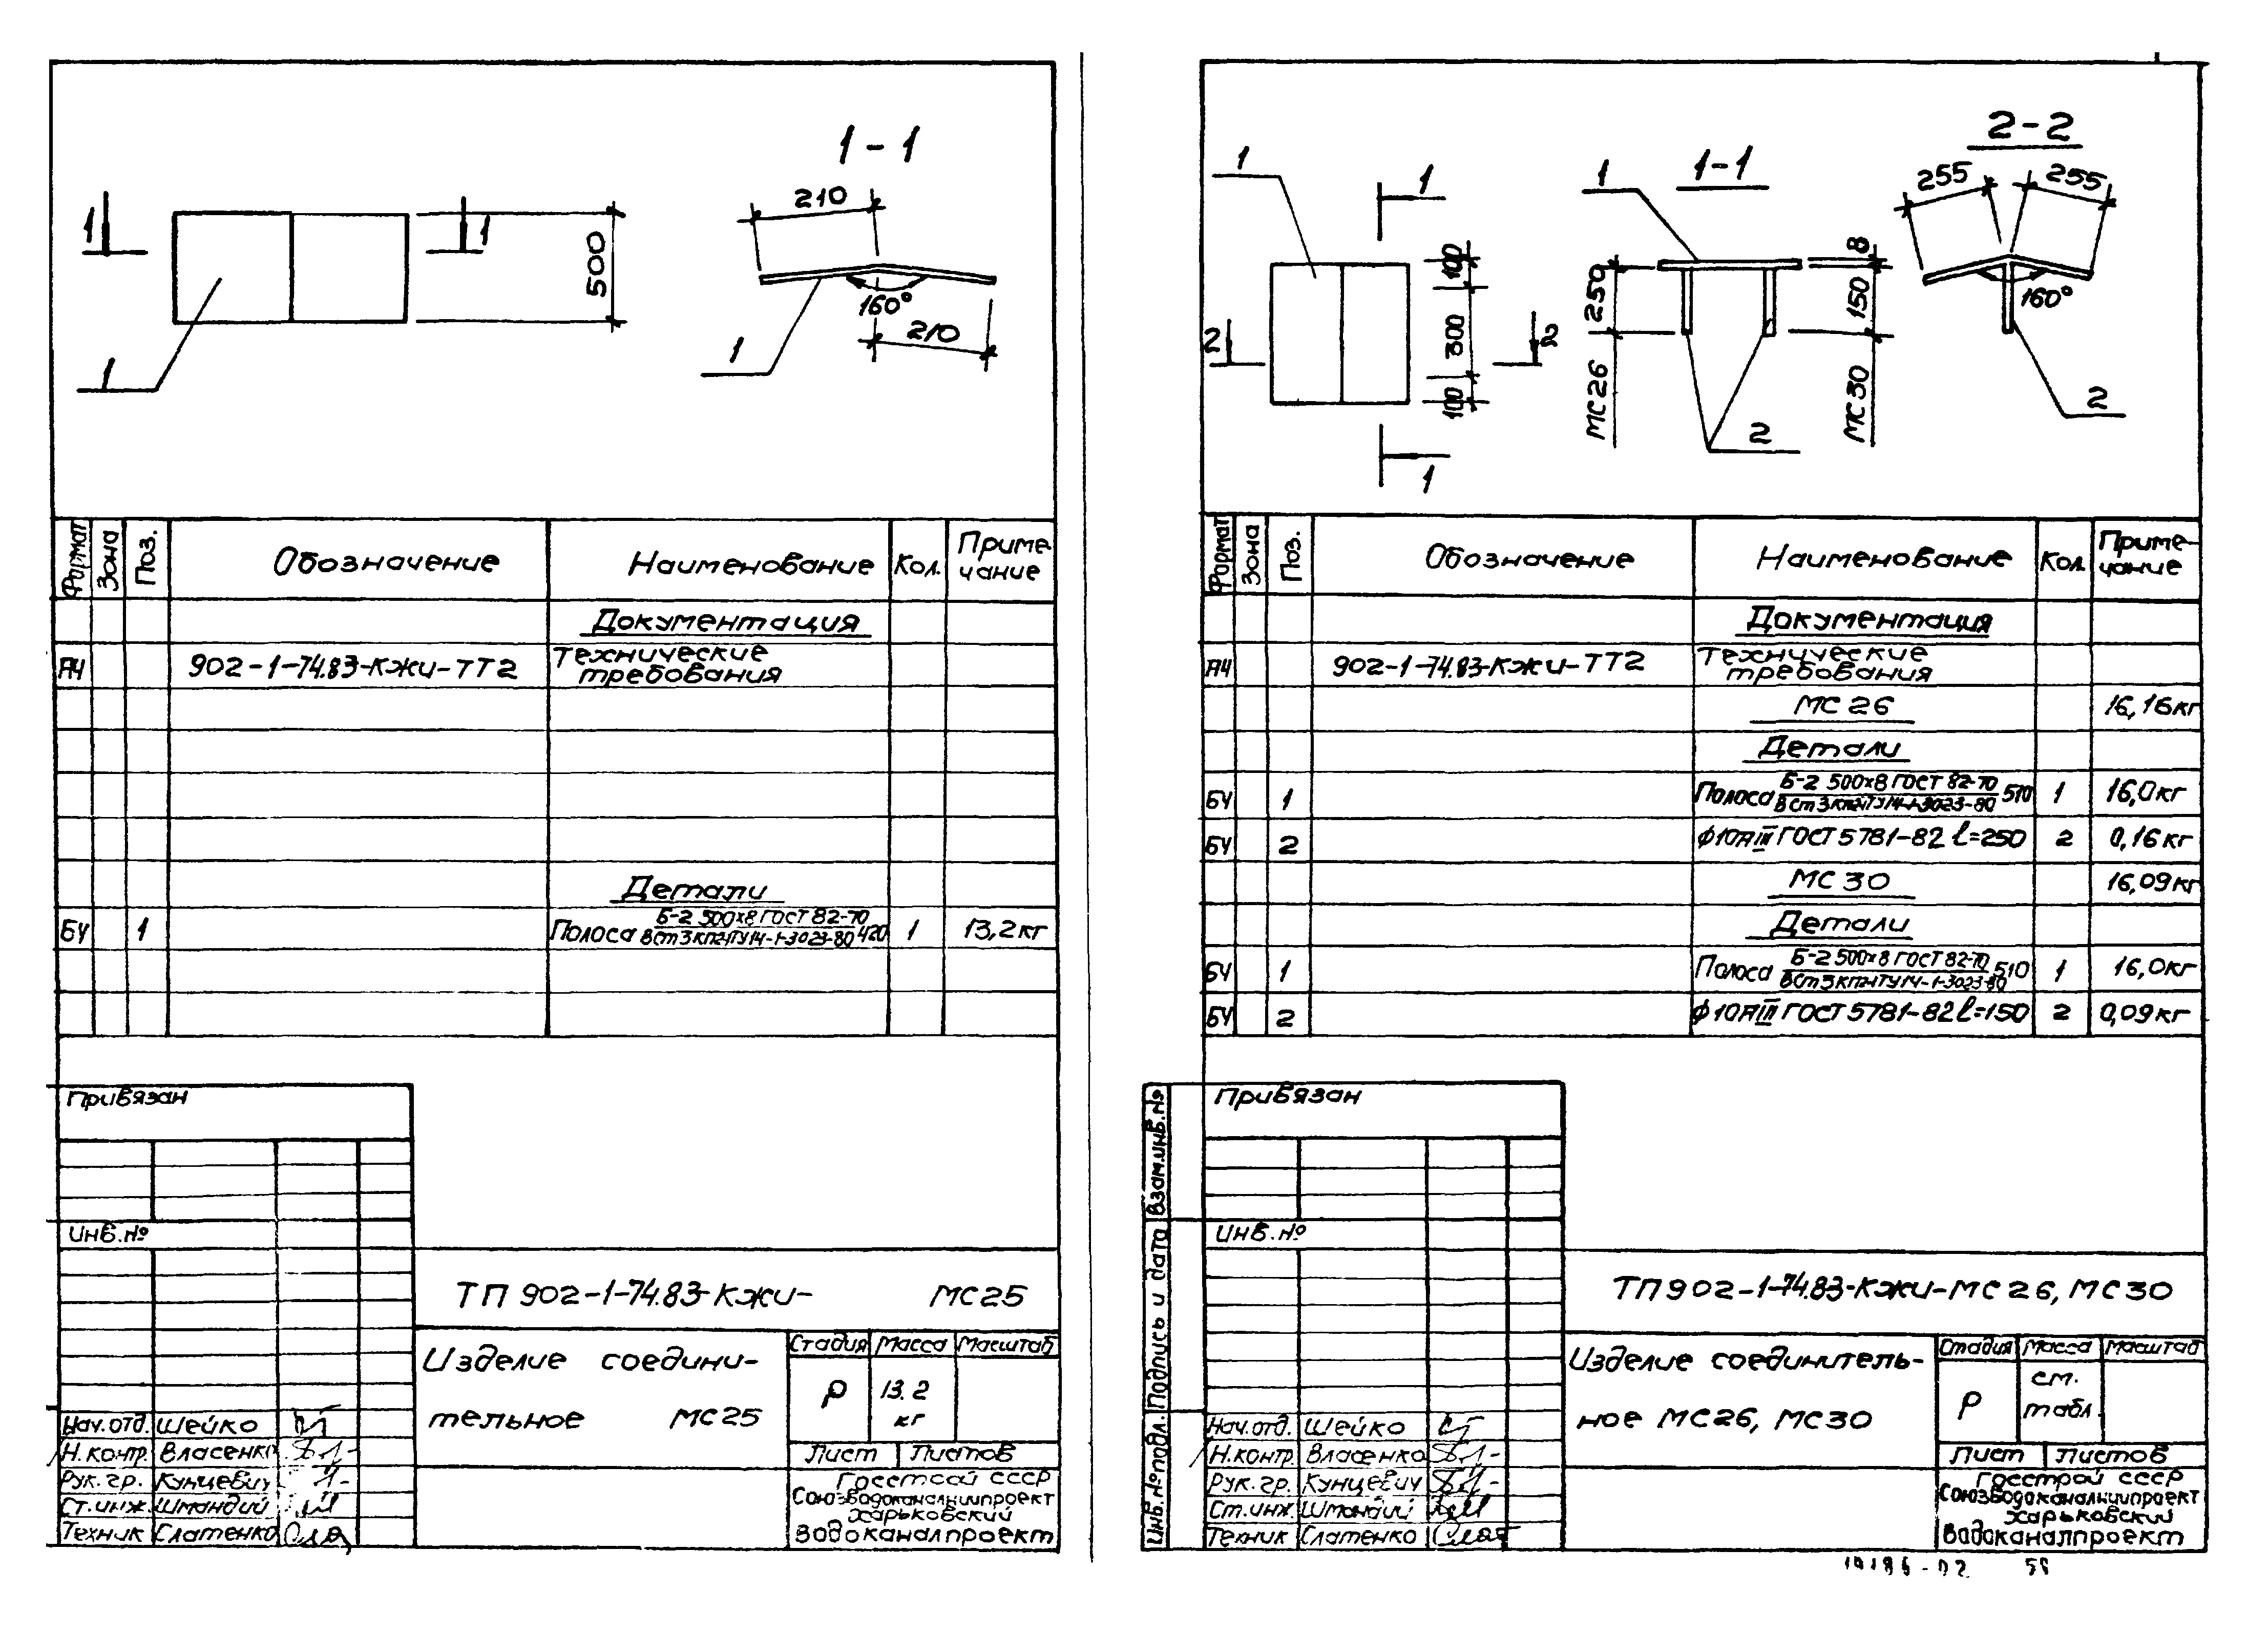 1-1
210
1
1
500
160°
210
1
1
Формат
Зона
Поз.
Обозначение
Наименование
Кол.
Приме-
чание
Документация
А4
902-1-74.83-КЖИ-ТТ2
Технические
требования
Детали
БЧ
1
Полоса Б-2 500x8 ГОСТ 82-70
ВСт3кп2-1ТУ14-1-3023-80 420
1
13,2кг
Привязан
Инв.№
ТП 902-1-74.83-КЖИ- МС25
Изделие соедини-
тельное МС25
Стадия
Масса
Масштаб
Р
13.2
кг
Лист
Листов
Нач.отд. Шейко
Н.контр. Власенко
Рук.гр. Кунцевич
Ст.инж. Шмандий
Техник Слатенко
Госстрой СССР
Союзводоканалниипроект
Харьковский
Водоканалпроект
1
1
100
300
100
2
2
1
1
1-1
250
МС26
8
150
МС30
2
2-2
255
255
160°
2
Формат
Зона
Поз.
Обозначение
Наименование
Кол.
Приме-
чание
Документация
А4
902-1-74.83-КЖИ-ТТ2
Технические
требования
МС26
16,16кг
Детали
БЧ
1
Полоса Б-2 500x8 ГОСТ 82-70
ВСт3кп2-1ТУ14-1-3023-80 510
1
16,0кг
БЧ
2
ф10АIII ГОСТ 5781-82 ℓ=250
2
0,16кг
МС30
16,09кг
Детали
БЧ
1
Полоса Б-2 500x8 ГОСТ 82-70
ВСт3кп2-1ТУ14-1-3023-80 510
1
16,0кг
БЧ
2
ф10АIII ГОСТ 5781-82 ℓ=150
2
0,09кг
Взам.инв.№
Подпись и дата
Инв.№подл.
Привязан
Инв.№
ТП902-1-74.83-КЖИ-МС26, МС30
Изделие соединитель-
ное МС26, МС30
Стадия
Масса
Масштаб
Р
см.
табл.
Лист
Листов
Нач.отд. Шейко
Н.контр. Власенко
Рук.гр. Кунцевич
Ст.инж. Шмандий
Техник Слатенко
Госстрой СССР
Союзводоканалниипроект
Харьковский
Водоканалпроект